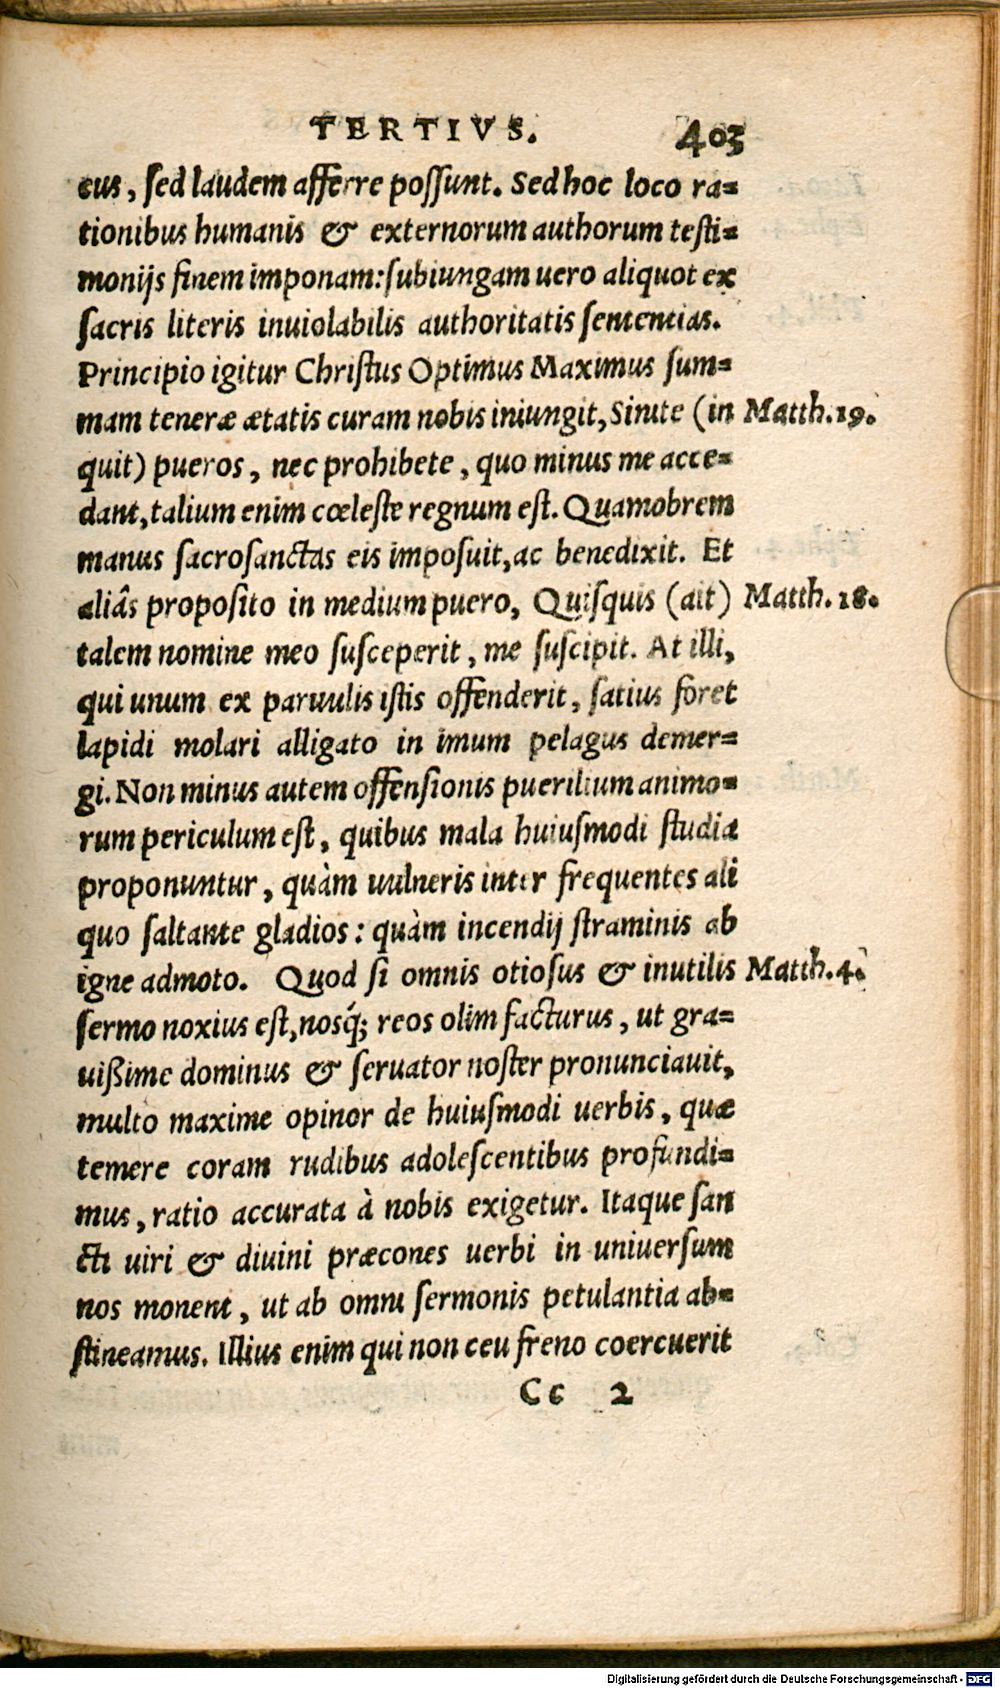 TERTIVS. 403
cus, sed laudem afferre possunt. Sed hoc loco ra=
tionibus humanis & externorum authorum testi=
monijs finem imponam: subiungam uero aliquot ex
sacris literis inuiolabilis authoritatis sententias.
Principio igitur Christus Optimus Maximus sum=
mam teneræ ætatis curam nobis iniungit, Sinite (in Matth. 19.
quit) pueros, nec prohibete, quo minus me acce=
dant, talium enim cœleste regnum est. Quamobrem
manus sacrosanctas eis imposuit, ac benedixit. Et
aliâs proposito in medium puero, Quisquis (ait) Matth. 18.
talem nomine meo susceperit, me suscipit. At illi,
qui unum ex paruulis istis offenderit, satius foret
lapidi molari alligato in imum pelagus demer=
gi. Non minus autem offensionis puerilium animo=
rum periculum est, quibus mala huiusmodi studia
proponuntur, quàm uulneris inter frequentes ali
quo saltante gladios: quàm incendij straminis ab
igne admoto. Quod si omnis otiosus & inutilis Matth. 4.
sermo noxius est, nosq́; reos olim facturus, ut gra=
uißime dominus & seruator noster pronunciauit,
multo maxime opinor de huiusmodi uerbis, quæ
temere coram rudibus adolescentibus profundi=
mus, ratio accurata à nobis exigetur. Itaque san
cti uiri & diuini præcones uerbi in uniuersum
nos monent, ut ab omni sermonis petulantia ab=
stineamus. Illius enim qui non ceu freno coercuerit
Cc 2
Digitalisierung gefördert durch die Deutsche Forschungsgemeinschaft - DFG